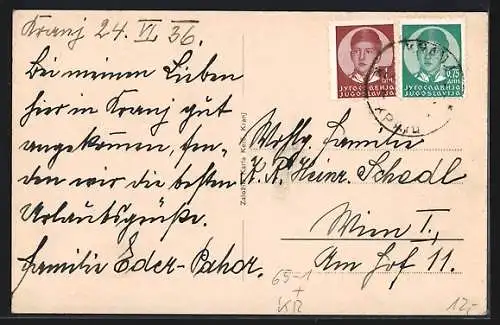 Kranj 24. VI. 36.
Bei meinen Lieben
hier in Kranj gut
angekommen, sen-
den wir die besten
Urlaubsgrüße.
Familie Eder-Pahor.
ЈУГОСЛАВИЈА
JUGOSLAVIJA
0,75
ДИН.
ЈУГОСЛАВИЈА
JUGOSLAVIJA
Wohlg. Familie
Heinr. Schedl
Wien I.,
Am Hof 11.
65-1
+
KR
12,-